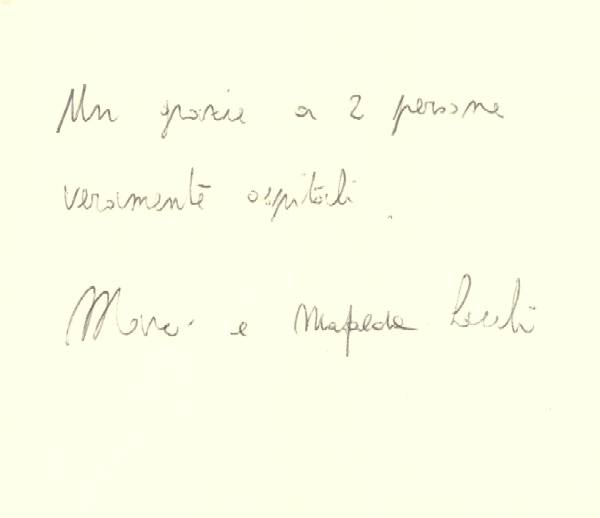 Un grazie a 2 persone
veramente ospitali.
e Mafalda